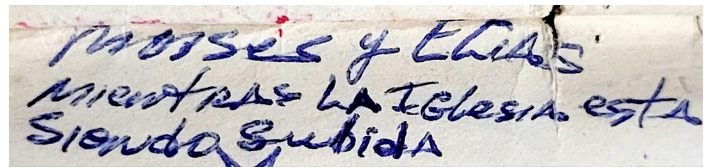 moises y ELiAS
mientRAS LA IGlesiA estA
Siendo SubidA